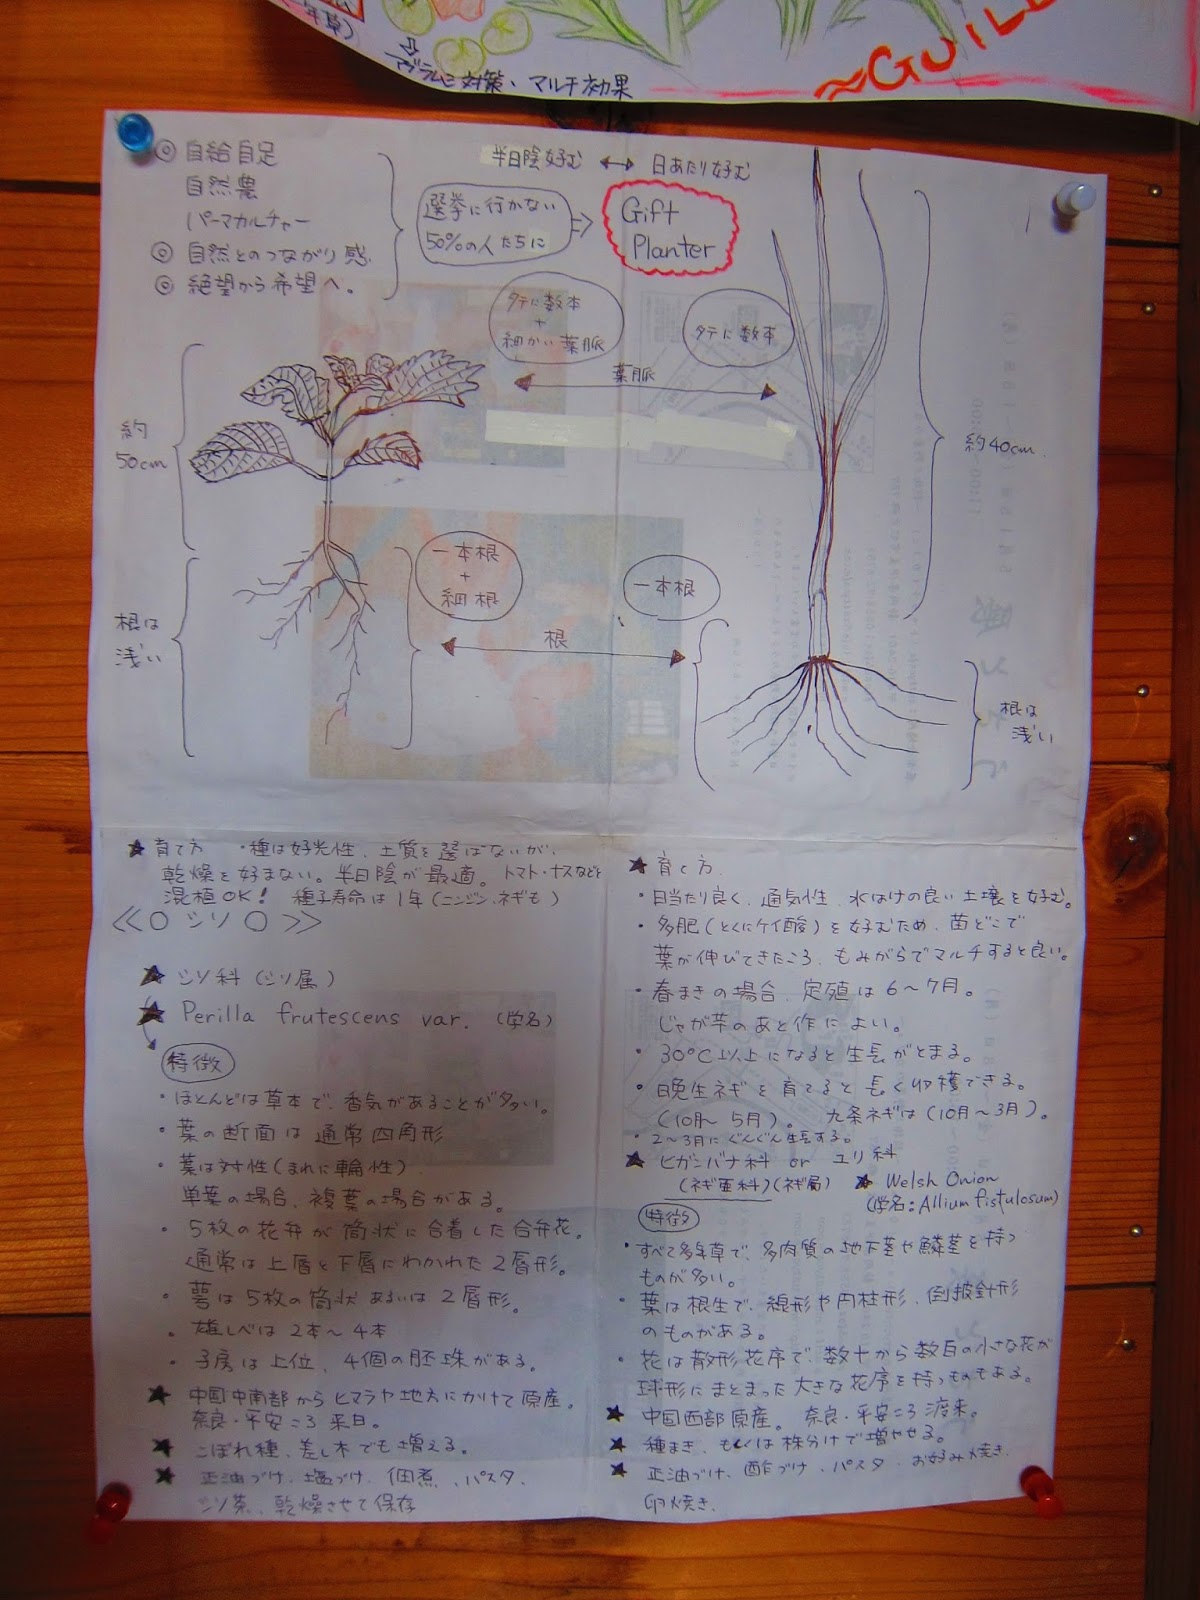 年草)
対策・マルチ効果
~GUIL
◎ 自給自足
自然農
パーマカルチャー
◎ 自然とのつながり感
◎ 絶望から希望へ。
選挙に行かない
50%の人たちに
半日陰好む ↔ 日あたり好む
Gift
Planter
タテに数本
+
細かい葉脈
タテに数本
葉脈
約
50cm
約40cm
一本根
+
細根
一本根
根
根は
浅い
根は
浅い
★ 育て方 ・種は好光性、土質を選ばないが、
乾燥を好まない。半日陰が最適。トマト・ナスなどと
混植OK! 種子寿命は1年(ニンジン、ネギも)
≪○ シソ ○≫
★ シソ科(シソ属)
★ Perilla frutescens var. (学名)
特徴
・ほとんどは草本で、香気があることが多い。
・葉の断面は通常四角形
・葉は対性(まれに輪性)
単葉の場合、複葉の場合がある。
・5枚の花弁が筒状に合着した合弁花。
通常は上唇と下唇にわかれた2唇形。
・萼は5枚の筒状あるいは2唇形。
・雄しべは2本～4本
・子房は上位、4個の胚珠がある。
★ 中国中南部からヒマラヤ地方にかけて原産。
奈良・平安ころ来日。
★ こぼれ種、差し木でも増える。
★ 正油づけ、塩づけ、佃煮、パスタ、
シソ茶、乾燥させて保存
★ 育て方
・日当たり良く、通気性、水はけの良い土壌を好む。
・多肥(とくにケイ酸)を好むため、苗どこで
葉が伸びてきたころ、もみがらでマルチすると良い。
・春まきの場合、定殖は6～7月。
じゃが芋のあと作によい。
・30℃以上になると生長がとまる。
・晩生ネギを育てると長く収穫できる。
(10月～5月)。 九条ネギは(10月～3月)。
・2～3月にぐんぐん生長する。
★ ヒガンバナ科 or ユリ科
(ネギ亜科)(ネギ属) ★ Welsh Onion
(学名:Allium fistulosum)
特徴
・すべて多年草で、多肉質の地下茎や鱗茎を持つ
ものが多い。
・葉は根生で、線形や円柱形、倒披針形
のものがある。
・花は散形花序で、数十から数百の小さな花が
球形にまとまった大きな花序を持つものもある。
★ 中国西部原産。 奈良・平安ころ渡来。
★ 種まき、もしくは株分けで増やせる。
★ 正油づけ、酢づけ、パスタ、お好み焼き、
卵焼き、